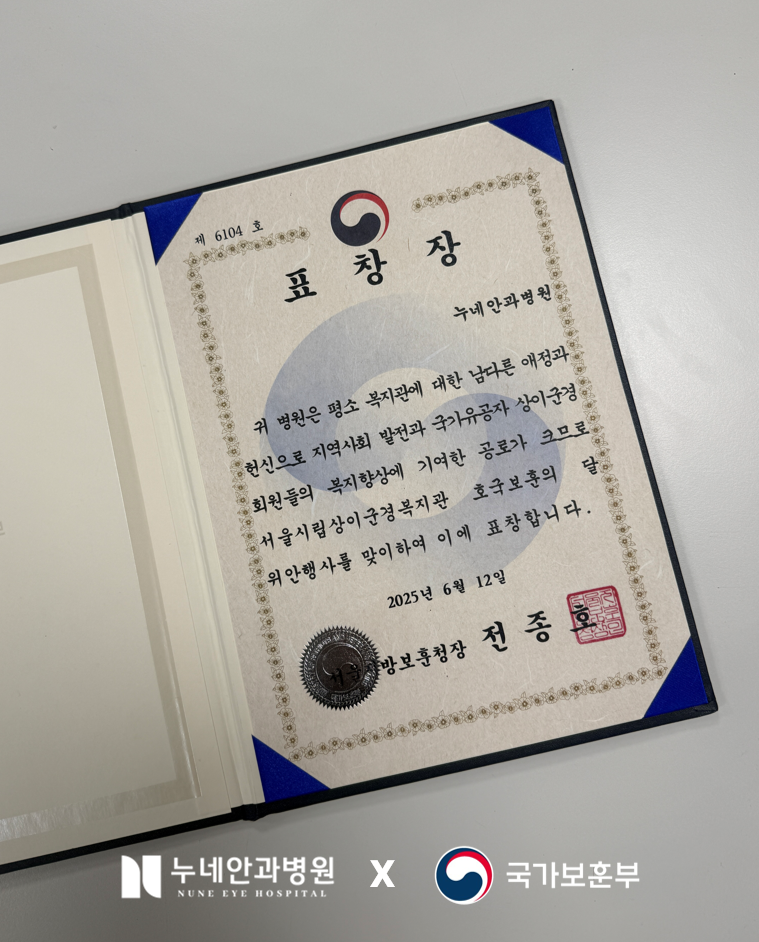 제 6104 호
표 창 장
누네안과병원
귀 병원은 평소 복지관에 대한 남다른 애정과
헌신으로 지역사회 발전과 국가유공자 상이군경
회원들의 복지향상에 기여한 공로가 크므로
서울시립상이군경복지관 호국보훈의 달
위안행사를 맞이하여 이에 표창합니다.
2025년 6월 12일
서울 방보훈청장 전 종 호
누네안과병원 X 국가보훈부
NUNE EYE HOSPITAL